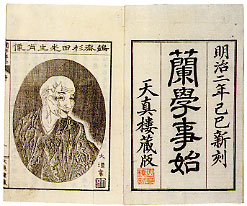 明治二年己巳新刻
蘭學事始
天真樓蔵版
鷧齋杉田先生肖像
大浪寫